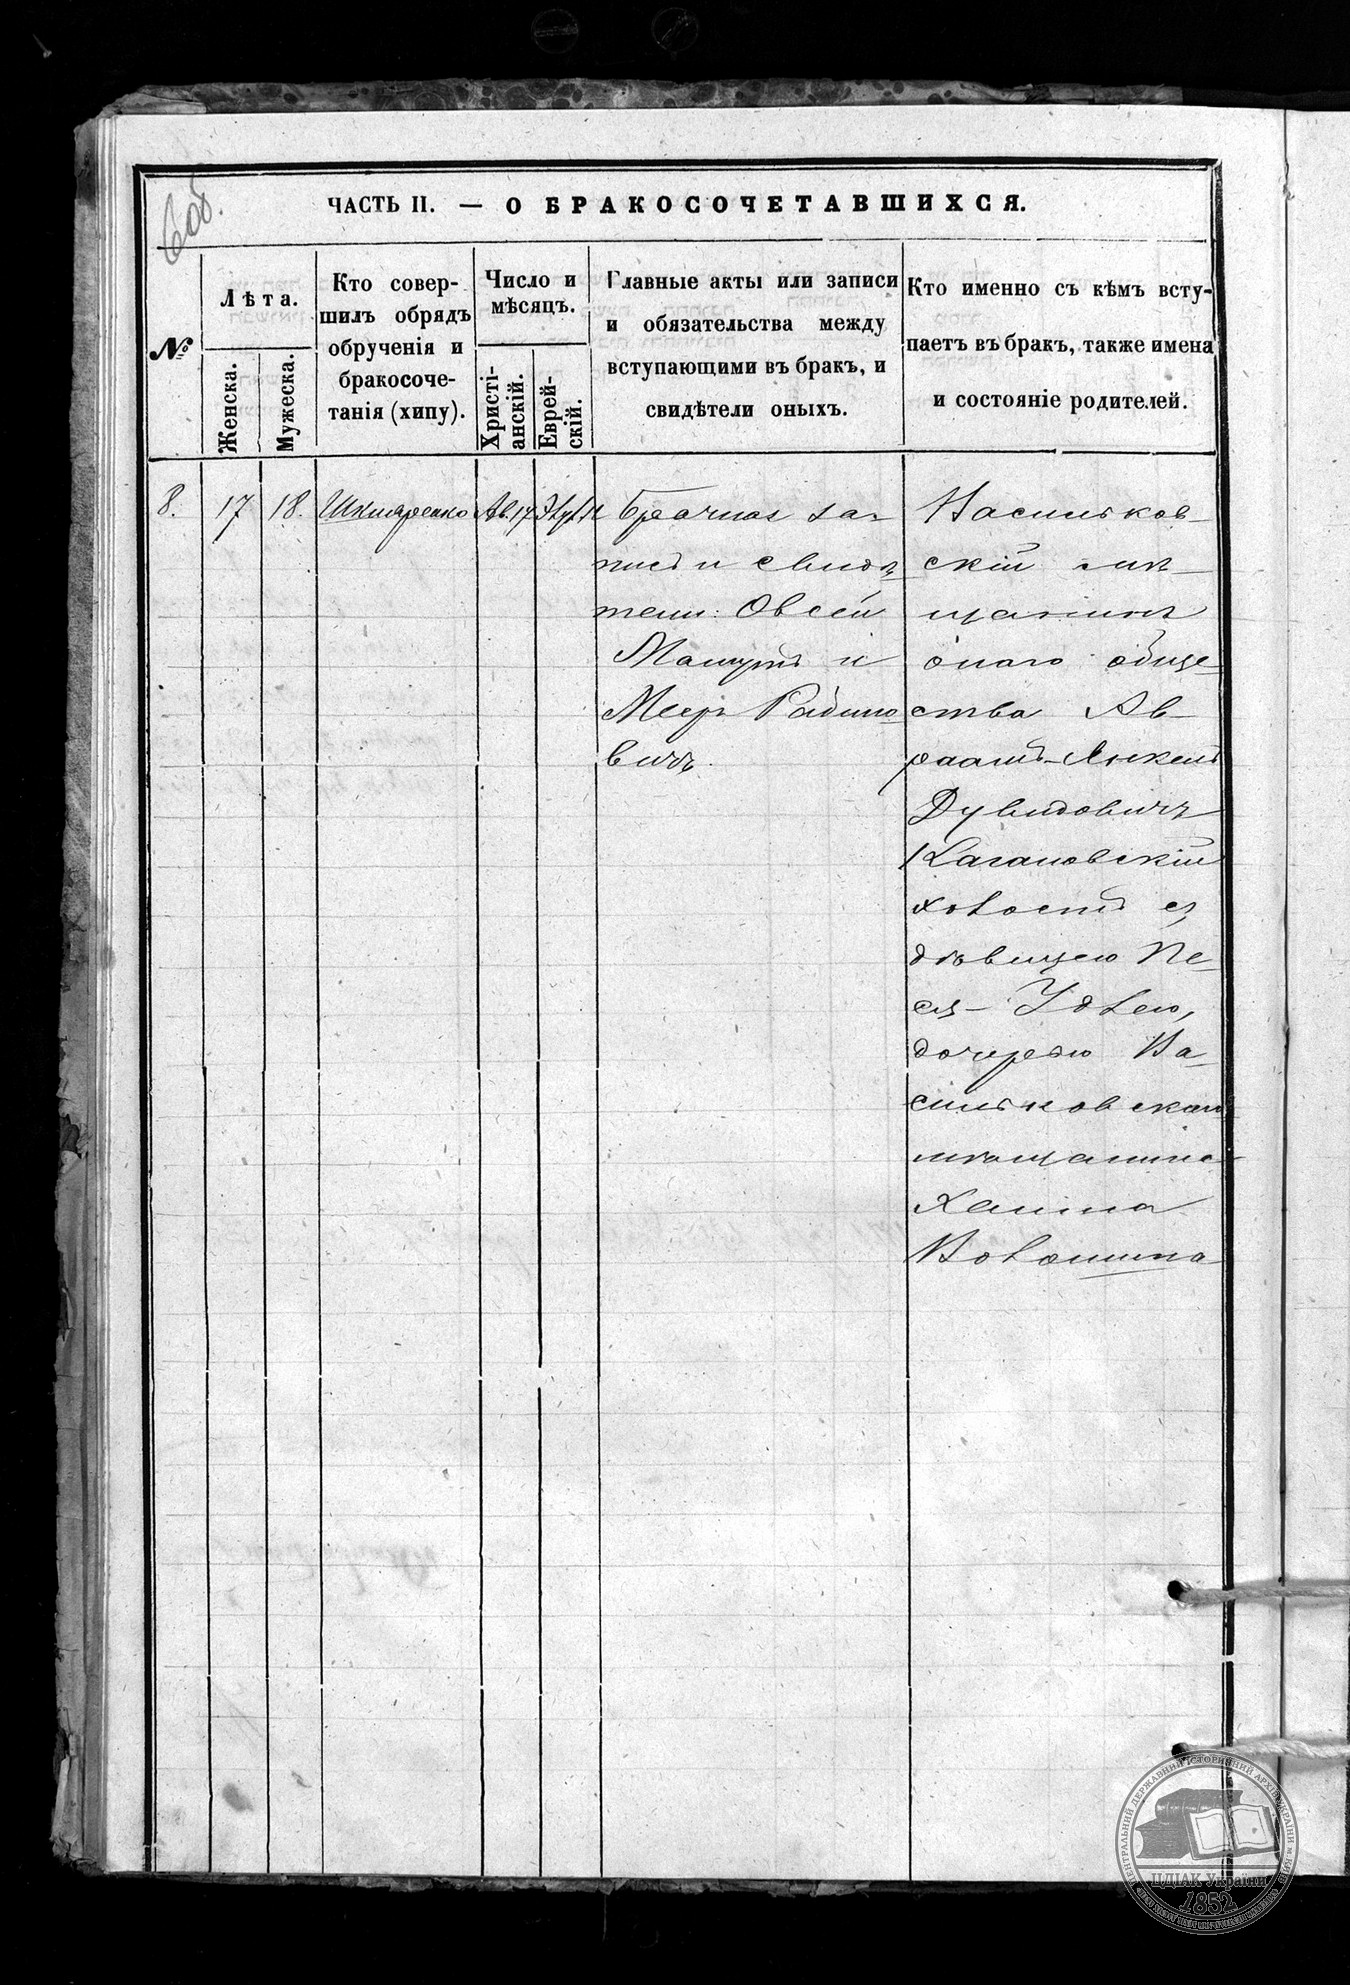 6об.
ЧАСТЬ II. — О БРАКОСОЧЕТАВШИХСЯ.
№
Лѣта.
Женска.
Мужеска.
Кто совер-
шилъ обрядъ
обрученія и
бракосоче-
танія (хипу).
Число и
мѣсяцъ.
Христі-
анскій.
Еврей-
скій.
Главные акты или записи
и обязательства между
вступающими въ бракъ, и
свидѣтели оныхъ.
Кто именно съ кѣмъ всту-
паетъ въ бракъ, также имена
и состояніе родителей.
8.
17
18.
Шкляренко
Ав. 17
Брачная за-
пись и свидѣ-
тели: Овсей
и
Меер Рабино-
вичъ.
Васильков-
скій мѣ-
щанинъ
онаго обще-
ства Ав-
раамъ-Янкель
Дувидовичъ
Кагановскій
холостъ съ
дѣвицею Пе-
ся-Удлею,
дочерью Ва-
сильковскаго
мѣщанина
Хаима
Волошина
ЦЕНТРАЛЬНИЙ ДЕРЖАВНИЙ ІСТОРИЧНИЙ АРХІВ УКРАЇНИ м. КИЇВ
ЦДІАК України
1852